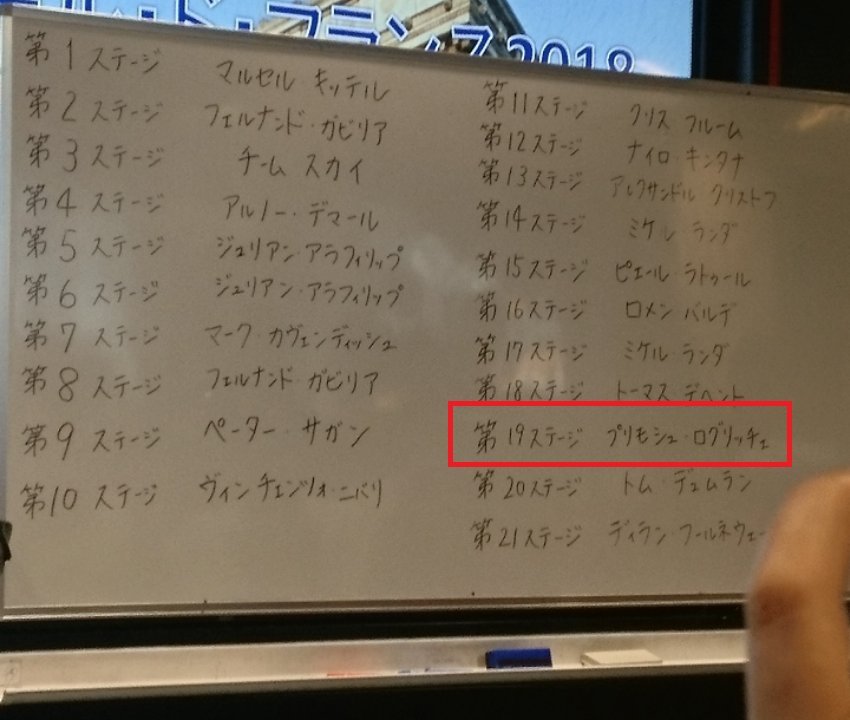 ル・ド・フランス 2018
第1ステージ マルセル・キッテル
第2ステージ フェルナンド・ガビリア
第3ステージ チーム スカイ
第4ステージ アルノー・デマール
第5ステージ ジュリアン・アラフィリップ
第6ステージ ジュリアン・アラフィリップ
第7ステージ マーク・カヴェンディッシュ
第8ステージ フェルナンド・ガビリア
第9ステージ ペーター・サガン
第10ステージ ヴィンチェンツォ・ニバリ
第11ステージ クリス・フルーム
第12ステージ ナイロ・キンタナ
第13ステージ アレクサンドル クリストフ
第14ステージ ミケル ランダ
第15ステージ ピエール・ラトゥール
第16ステージ ロメン バルデ
第17ステージ ミケル・ランダ
第18ステージ トーマス・デヘント
第19ステージ プリモシュ・ログリッチェ
第20ステージ トム・デュムラン
第21ステージ ディラン・フールネウェー